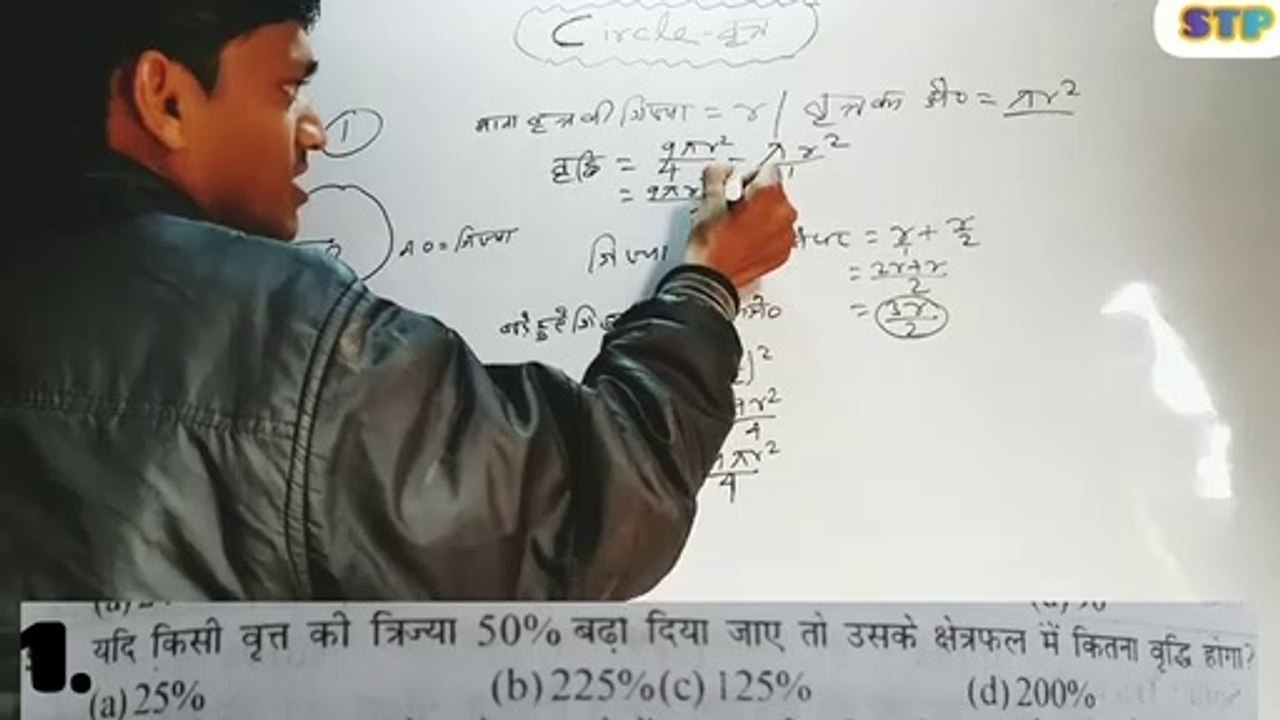 STP
Circle-वृत्त
1
माना वृत्त की त्रिज्या = r / वृत्त का क्षे० = πr²
वृद्धि = 9πr²/4 - πr²/1
= 9πr
AO = त्रिज्या
त्रिज्या = r/1 + r/2
= 2r+r/2
= 3r/2
क्षे०
)²
πr²/4
9πr²/4
1. यदि किसी वृत्त की त्रिज्या 50% बढ़ा दिया जाए तो उसके क्षेत्रफल में कितना वृद्धि होगा?
(a) 25% (b) 225% (c) 125% (d) 200%